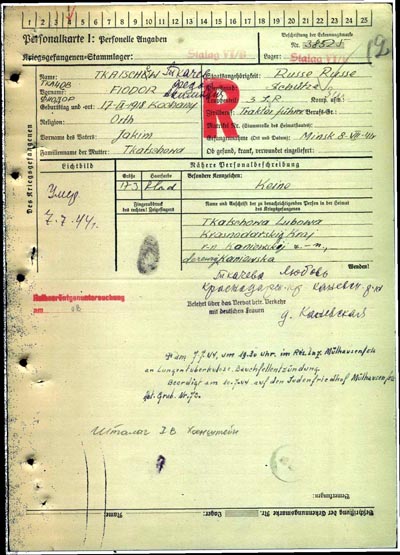 1 2 3 4 5 6 7 8 9 10 11 12 13 14 15 16 17 18 19 20 21 22 23 24 25
Personalkarte I: Personelle Angaben
Beschriftung der Erkennungsmarke
Nr. 38525
Kriegsgefangenen-Stammlager: Stalag VI/G
Lager: Stalag VI/G
12
Des Kriegsgefangenen
Name: TKATSCHÖW Ткачев
Staatsangehörigkeit: Russe
ТКАЧОВ
Vorname: FIODOR
Dienstgrad: Schütze
ФИОДОР
Geburtstag und -ort: 17-II-1918
Truppenteil: 3 I.R. Komp. usw.:
R
Zivilberuf: Traktorführer Berufs-Gr.:
Religion: Orth
Matrikel Nr. (Stammrolle des Heimatstaates):
Vorname des Vaters: Jakim
Gefangennahme (Ort und Datum): Minsk 8-VII-41
Familienname der Mutter: Tkatschowa
Ob gesund, krank, verwundet eingeliefert:
Lichtbild
Nähere Personalbeschreibung
Größe
Haarfarbe
Besondere Kennzeichen:
173
blod
Keine
Fingerabdruck
des rechten! Zeigefingers
Name und Anschrift der zu benachrichtigenden Person in der Heimat
des Kriegsgefangenen
Умер
7.7.44г.
Tkatschowa Lubowa
Krasnodarskij Kraj
r-n Kaniewskoj
Kaniewska
Wenden!
Ткачева Любовь
Röntgenuntersuchung
am
Belehrt über das Verbot betr. Verkehr
mit deutschen Frauen
д. Каневская
Am 7.7.44, um 19.30 uhr, im Res. Laz. Mülhausen
an Lungentuberkulose, Bauchfellentzündung.
Beerdigt am 10.7.44 auf den Judenfriedhof Mülhausen
Grab. Nr.
Шталаг I B Хонштейн
Bemerkungen:
Beschriftung der Erkennungsmarke
Nr.
Lager:
Name: